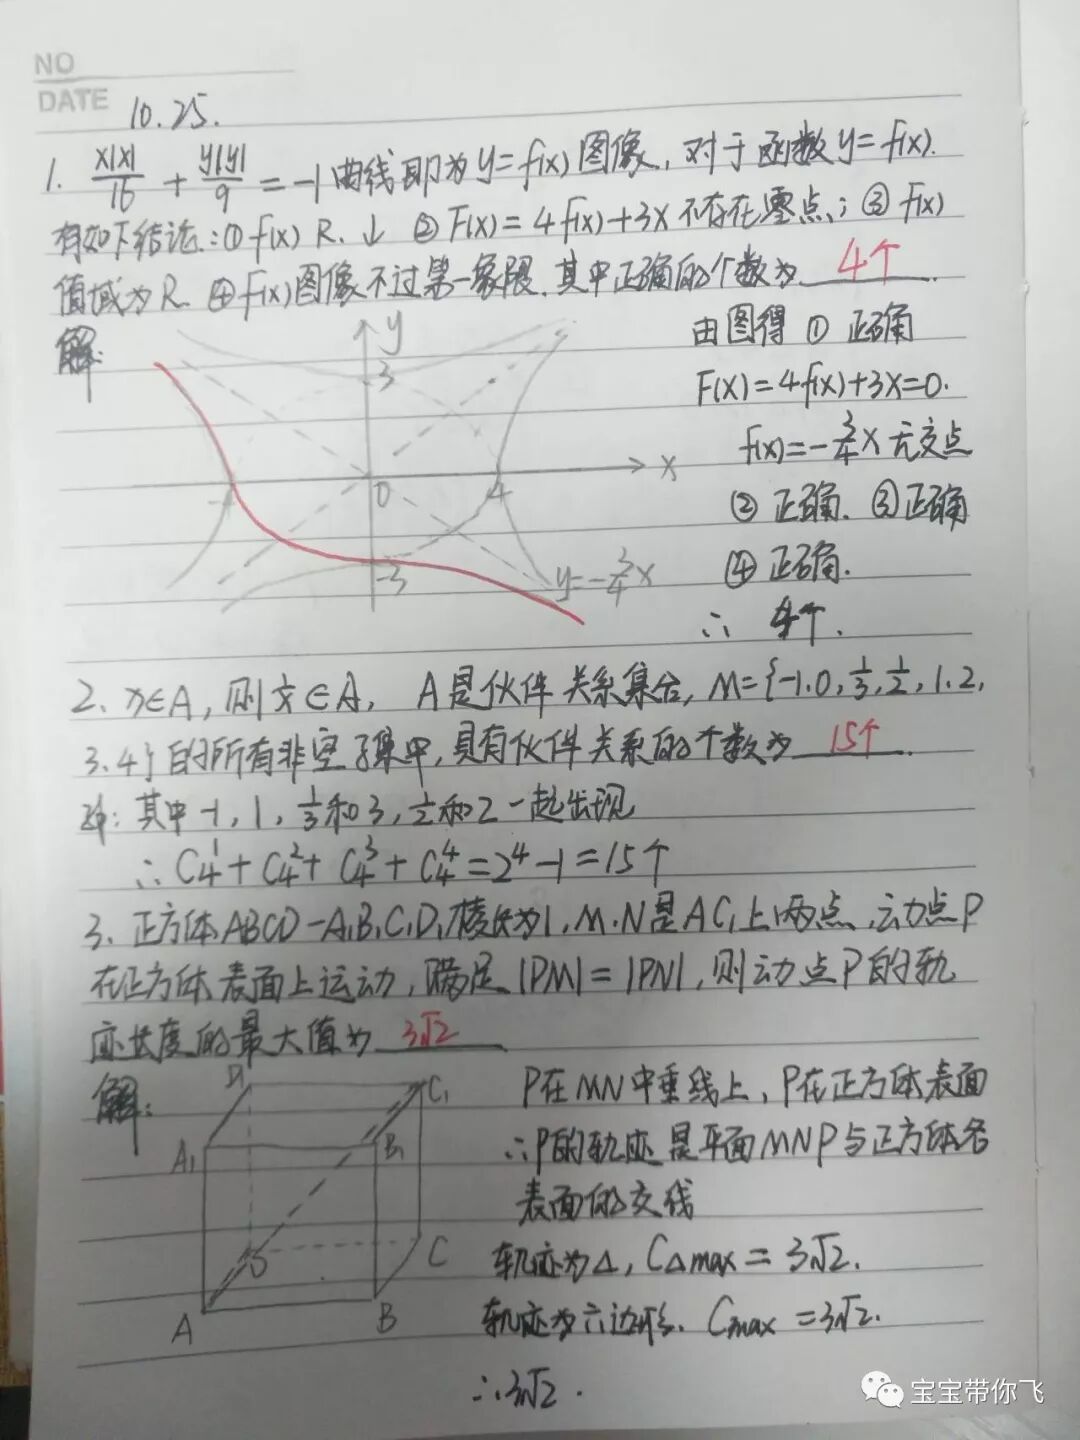 NO
DATE 10.25.
1. x|x|/16 + y|y|/9 = -1曲线即为y=f(x)图像，对于函数y=f(x).
有如下结论:①f(x) R.↓ ②F(x)=4f(x)+3x不存在零点;③f(x)
值域为R. ④f(x)图像不过第一象限.其中正确的个数为 4个.
解:
y
3
x
0
4
-3
y=-3/4x
由图得 ① 正确
F(x)=4f(x)+3x=0.
f(x)=-3/4x 无交点
② 正确. ③正确
④ 正确.
∴ 4个.
2. x∈A, 则1/x∈A, A是伙伴关系集合, M={-1.0,1/3,1/2,1.2,
3.4}的所有非空子集中,具有伙伴关系的个数为 15个.
解:其中-1,1,1/3和3,1/2和2一起出现
∴C₄¹+C₄²+C₄³+C₄⁴=2⁴-1=15个
3. 正方体ABCD-A₁B₁C₁D₁棱长为1,M.N是AC₁上两点,动点P
在正方体表面上运动,满足|PM|=|PN|,则动点P的轨
迹长度的最大值为 3√2
解:
D₁
C₁
A₁
B₁
D
C
A
B
P在MN中垂线上,P在正方体表面
∴P的轨迹是平面MNP与正方体各
表面的交线
轨迹为△,C△max=3√2.
轨迹为六边形. Cmax=3√2.
∴3√2.
宝宝带你飞